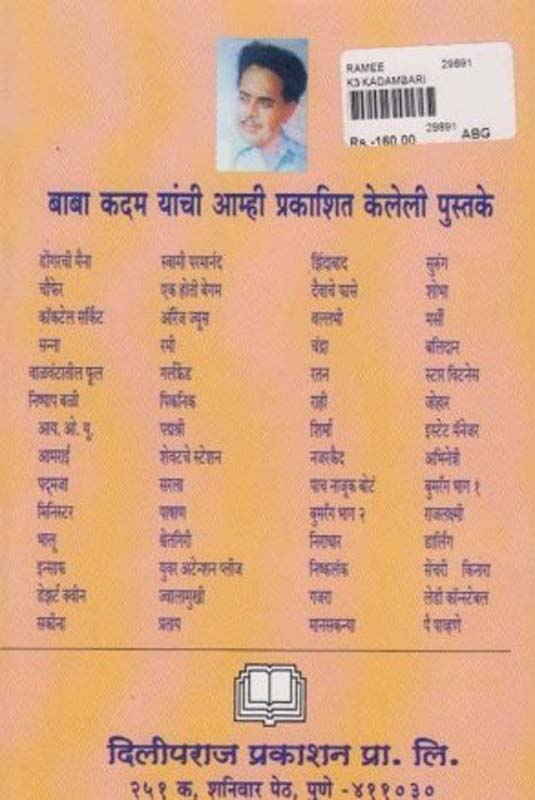 RAMEE 29891
K3 KADAMBARI
29891 ABG
Rs.-160.00
बाबा कदम यांची आम्ही प्रकाशित केलेली पुस्तके
डोंगरची मैना स्वामी परमानंद झिंदाबाद सुरुंग
चौफेर एक होती बेगम दैवाचे फासे शोभा
कॉकटेल सर्किट ऑरेंज ज्यूस वाल्लभी मर्सी
सन्ना रमी चंद्रा बलिदान
वाळवंटातील फूल गर्लफ्रेंड रतन स्टार विटनेस
निष्पाप बळी पिकनिक राही जोहार
आय. ओ. यू. पद्मश्री शिर्मा इस्टेट मॅनेजर
आमराई शेवटचे स्टेशन नजरकैद अभिनेत्री
पद्मजा सरला पाच नाजूक बोटं बुमरँग भाग १
मिनिस्टर पाषाण बुमरँग भाग २ राजलक्ष्मी
भालू श्वेतगिरी निराधार डार्लिंग
इन्साफ युवर अटेन्शन प्लीज निष्कलंक सेंचरी किनारा
डेझर्ट क्वीन ज्वालामुखी गजरा लेडी कॉन्स्टेबल
सकीना प्रताप मानसकन्या पै पाव्हणे
दिलीपराज प्रकाशन प्रा. लि.
२५१ क, शनिवार पेठ, पुणे -४११०३०